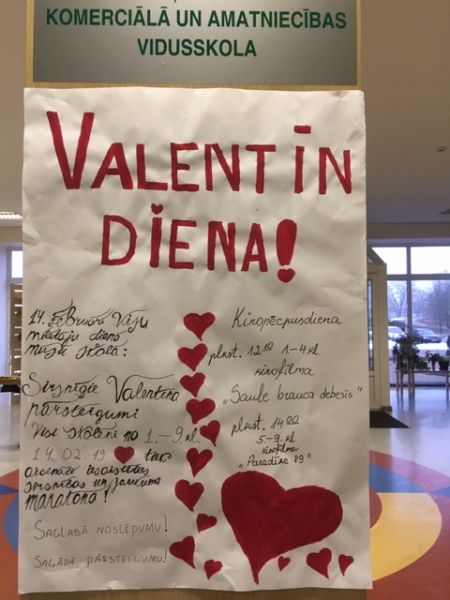 KOMERCIĀLĀ UN AMATNIECĪBAS
VIDUSSKOLA
VALENTĪN
DIENA!
14. februārī Visu
mīlētāju dienā
mūsu skolā:
Sirsnīgie Valentīna
pārsteigumi
Visi skolēni no 1.-9.kl.
14.02.19 tiek
aicināti iesaistīties
sirsnības un jaukuma
maratonā!
SAGLABĀ NOSLĒPUMU!
SAGĀDĀ PĀRSTEIGUMU!
Kinopēcpusdiena
plkst. 12:10 1-4.kl
kinofilma
"Saule brauca debesīs"
plkst. 14:00
5-9.kl
kinofilma
"Paradīze 89"